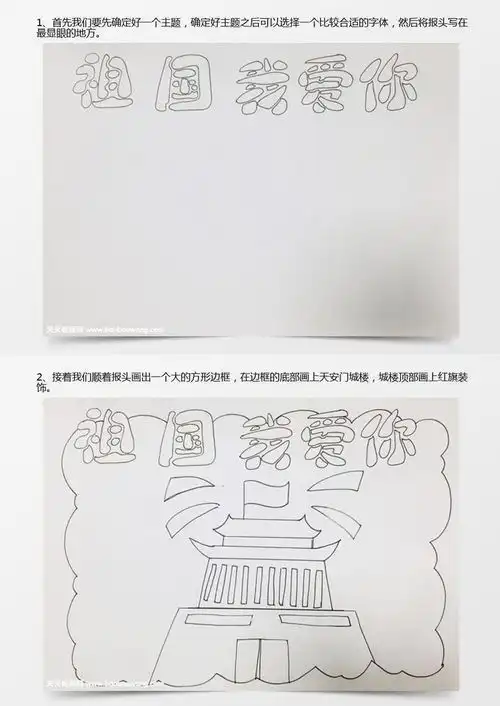 1、首先我们要先确定好一个主题，确定好主题之后可以选择一个比较合适的字体，然后将报头写在
最显眼的地方。
祖国我爱你
2、接着我们顺着报头画出一个大的方形边框，在边框的底部画上天安门城楼，城楼顶部画上红旗装
饰。
祖国我爱你